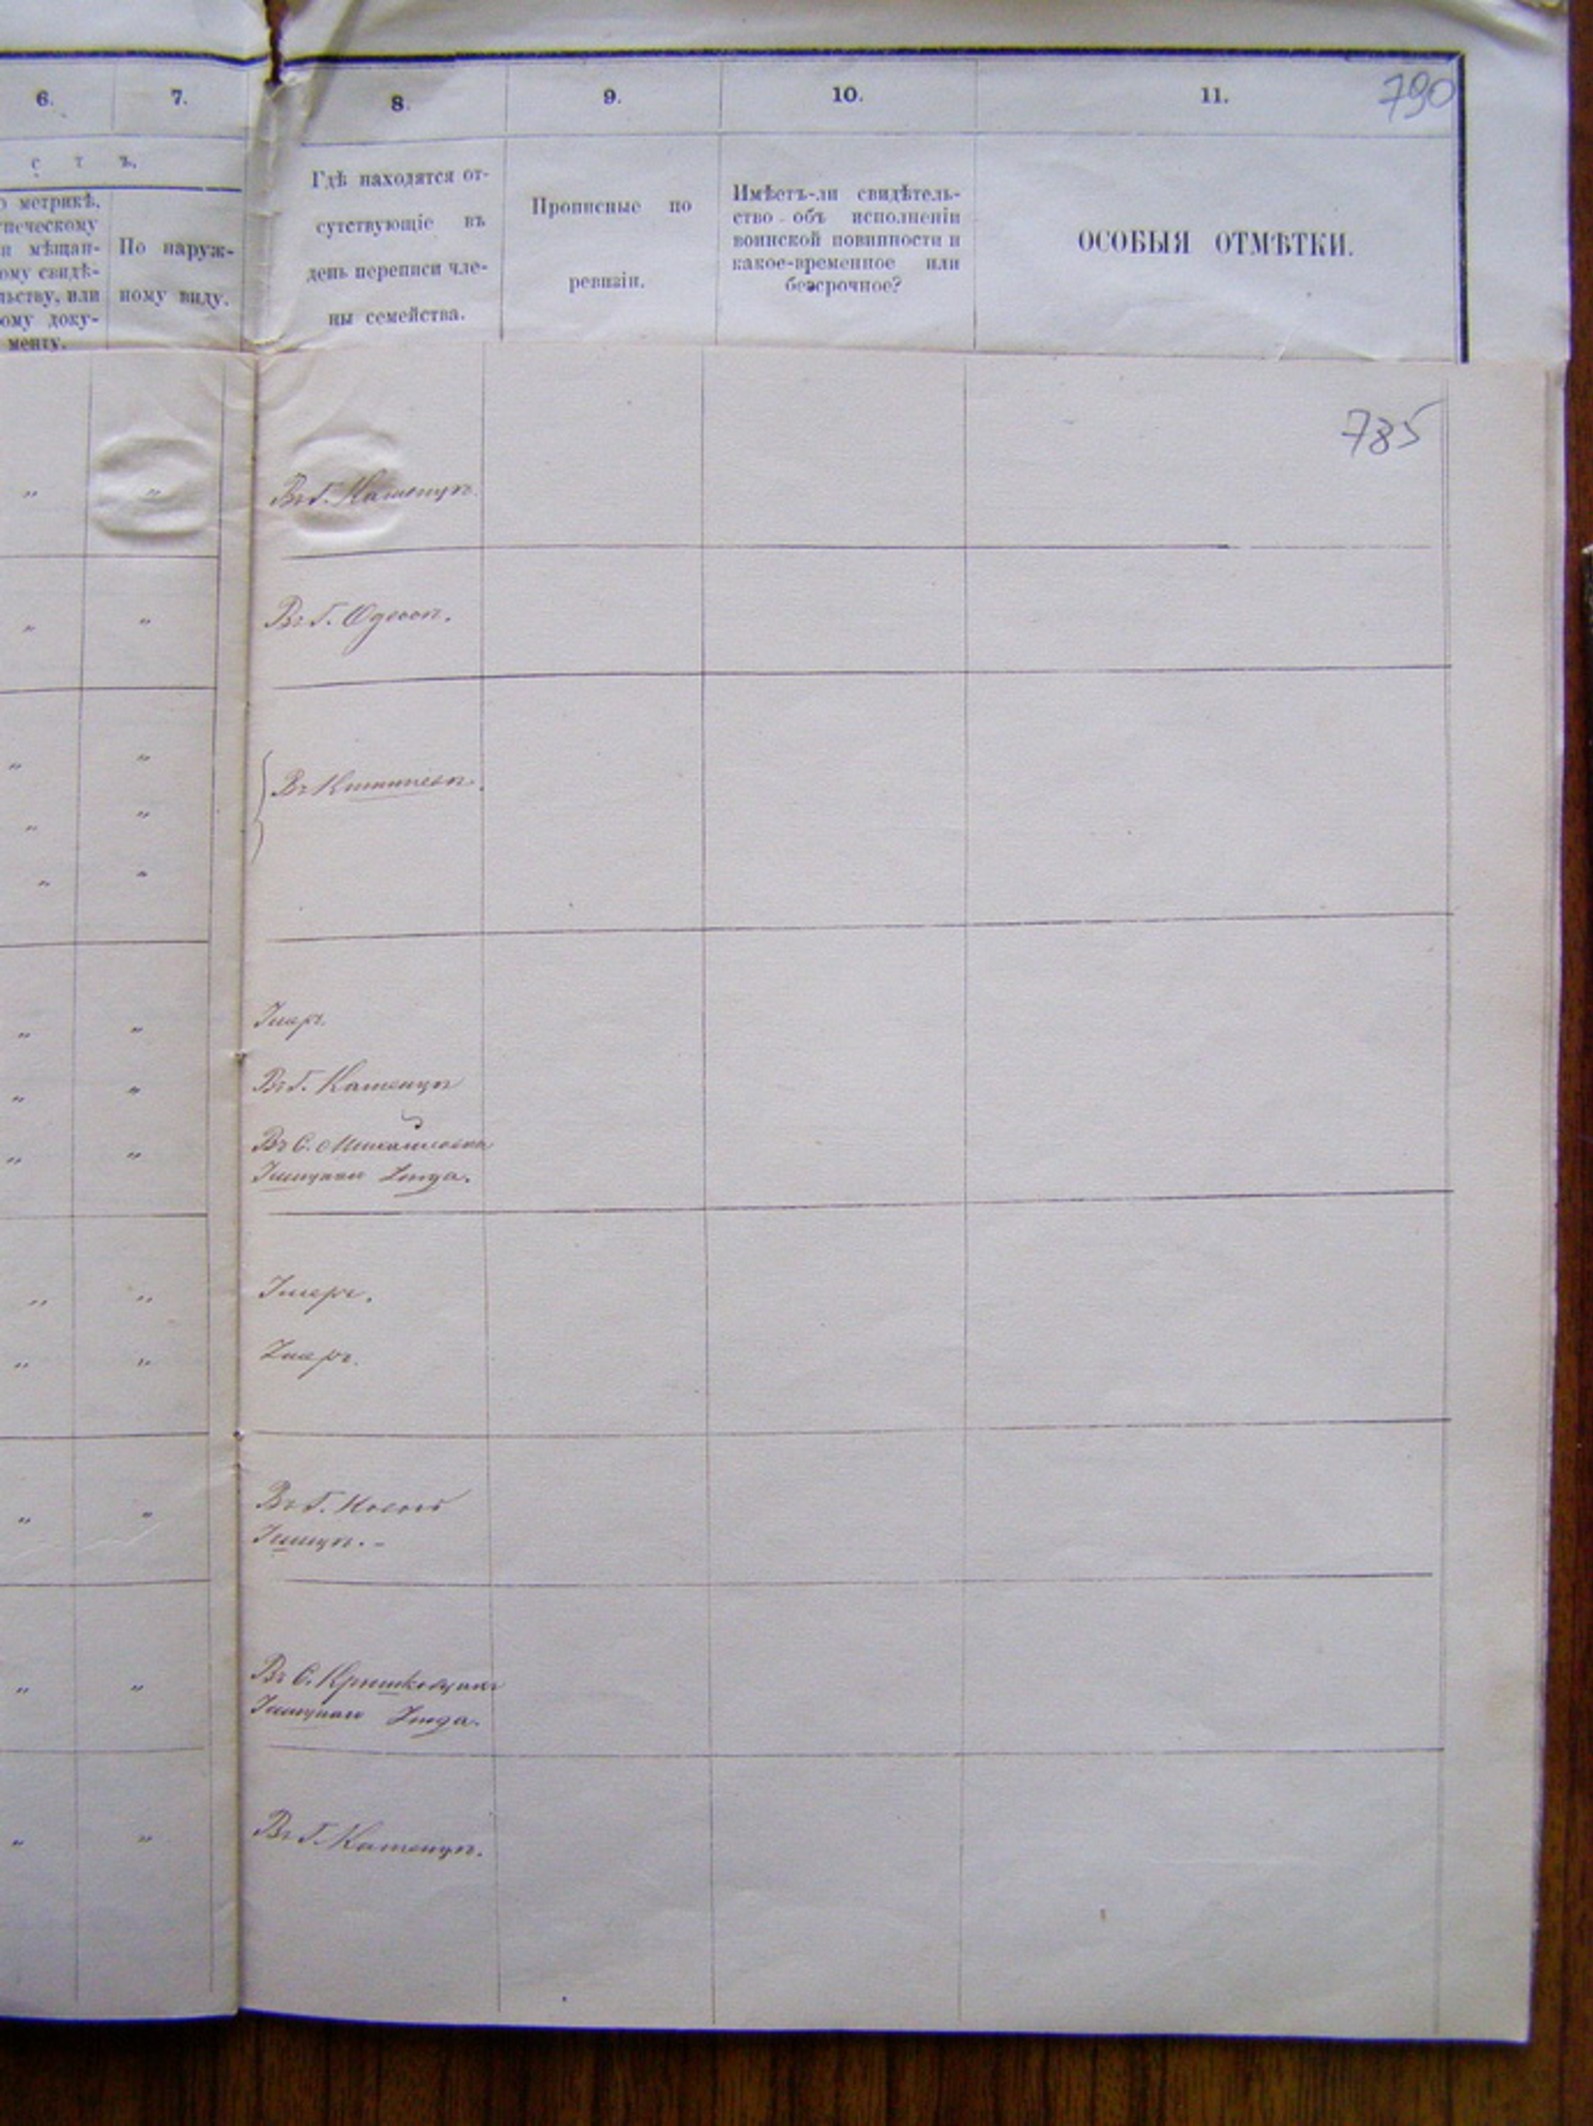 6. 7. 8. 9. 10. 11. 790
с т ъ.
о метрикѣ,
печескому
и мѣщан-
ому свидѣ-
льству, или
ому доку-
менту.
По наруж-
ному виду.
Гдѣ находятся от-
сутствующіе въ
день переписи чле-
ны семейства.
Прописные по
ревизіи.
Имѣетъ-ли свидѣтель-
ство объ исполненіи
воинской повинности и
какое-временное или
безсрочное?
ОСОБЫЯ ОТМѢТКИ.
785
" " Въ Г. Каменцѣ.
" " Въ Г. Одессѣ.
" "
" " Въ Кишиневѣ.
" "
" " Умеръ.
" " Въ Г. Каменцѣ
" " Въ С.
Ушицкаго Уѣзда.
" " Умеръ.
" " Умеръ.
" " Въ Г. Новой
Ушицѣ.-
" " Въ С.
Ушицкаго Уѣзда.
" " Въ Г. Каменцѣ.